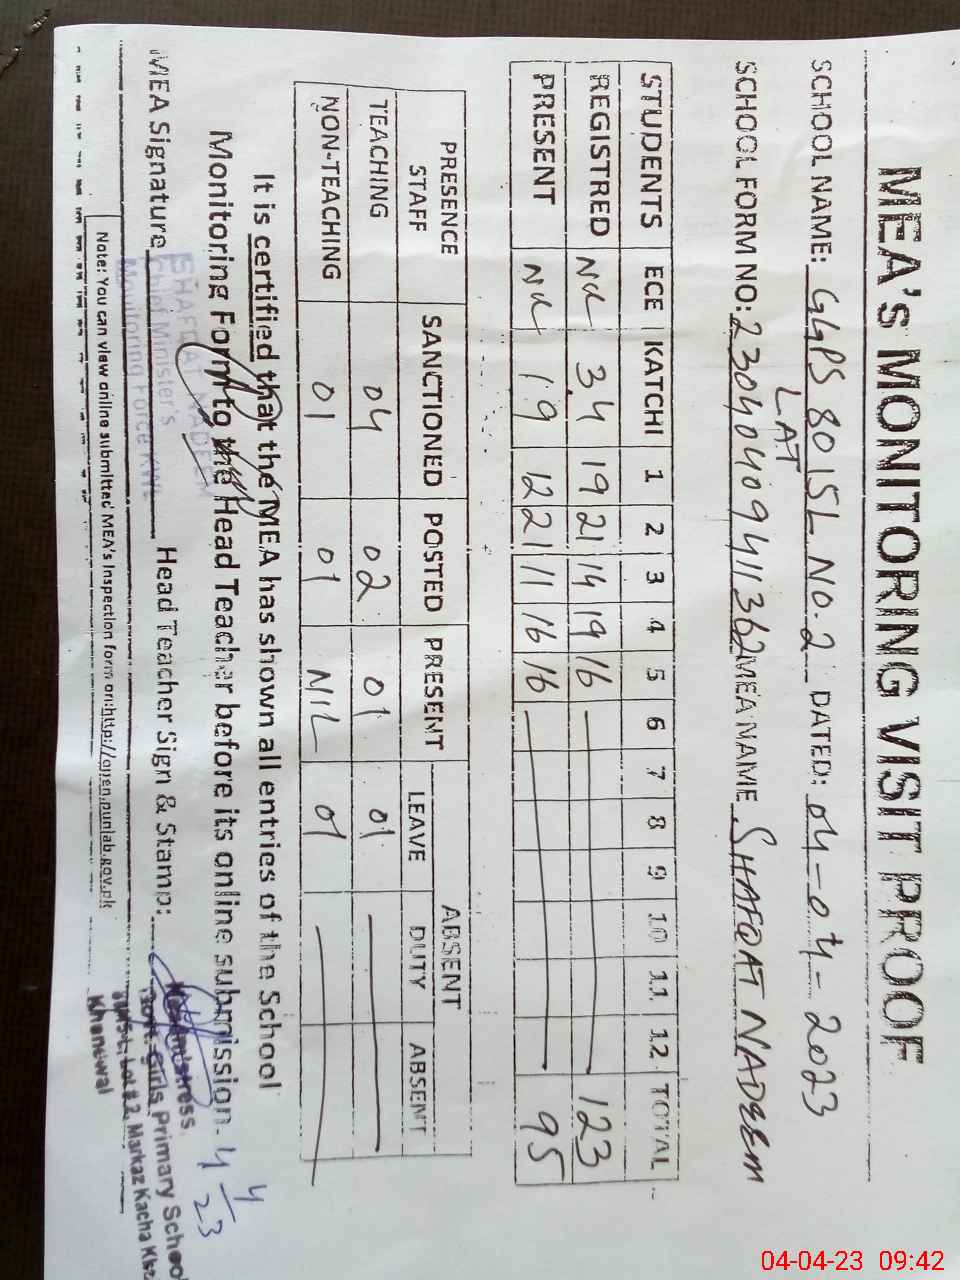 MEA'S MONITORING VISIT PROOF
SCHOOL NAME: GGPS 8015L NO. 2 DATED: 04-04-2023
LAT
SCHOOL FORM NO: 23040409411362 MEA NAME SHAFQAT NADEEM
STUDENTS ECE KATCHI 1 2 3 4 5 6 7 8 9 10 11 12 TOTAL
REGISTRED NIL 34 19 21 14 19 16 123
PRESENT NIL 19 12 21 11 16 16 95
PRESENCE STAFF SANCTIONED POSTED PRESENT ABSENT
LEAVE DUTY ABSENT
TEACHING 04 02 01 01
NON-TEACHING 01 01 NIL 01
It is certified that the MEA has shown all entries of the School
Monitoring Form to the Head Teacher before its online submission.
4/4/23
MEA Signature Head Teacher Sign & Stamp:
SHAFQAT NADEEM
Chief Minister's
Monitoring Force KWL
Headmistress
Govt. Girls Primary School
Lot # 2, Markaz Kacha
Khanewal
Note: You can view online submitted MEA's Inspection form on: http://open.punjab.gov.pk
04-04-23 09:42